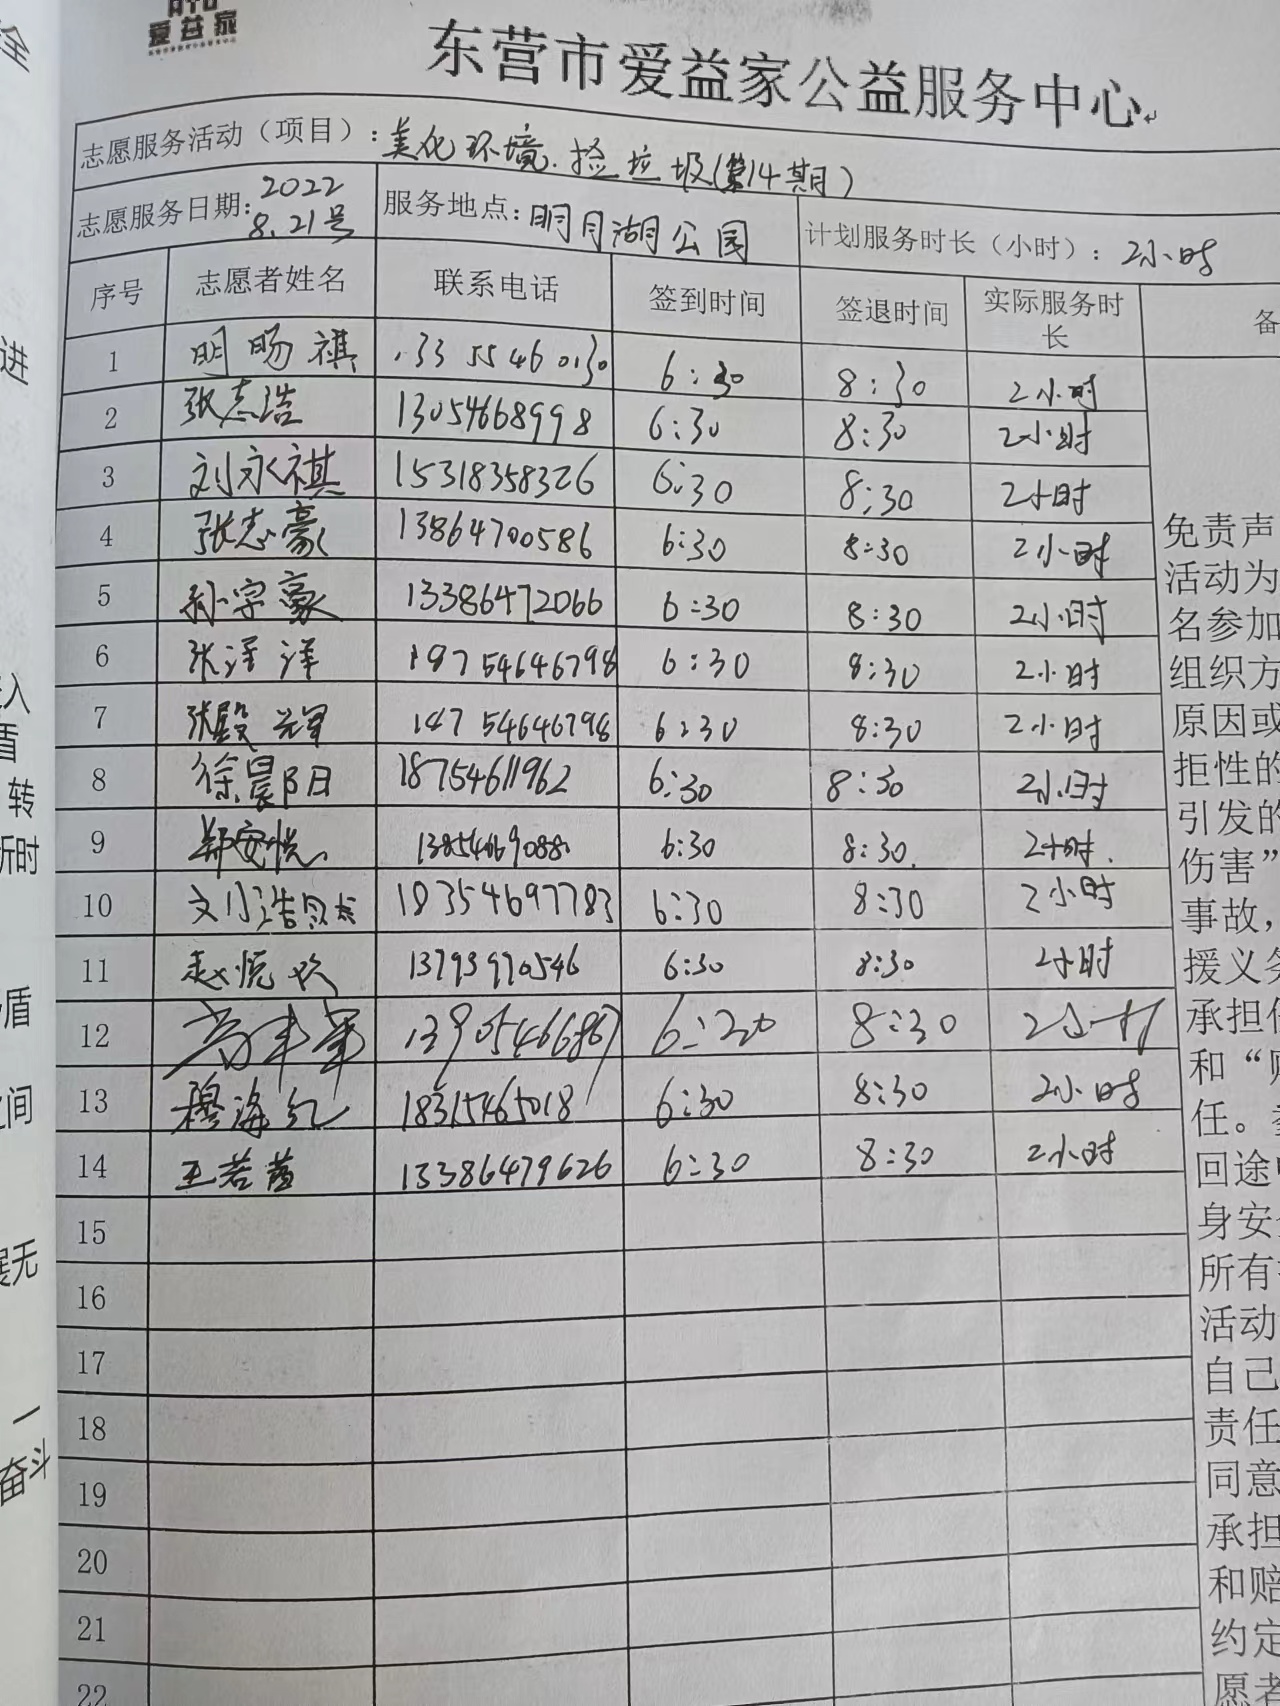 爱益家
东营市爱益家公益服务中心
志愿服务活动（项目）：美化环境.捡垃圾(第14期)
志愿服务日期：2022 8.21号 服务地点：明月湖公园 计划服务时长（小时）：2小时
序号 志愿者姓名 联系电话 签到时间 签退时间 实际服务时长 备
1 明旸祺 13355460130 6:30 8:30 2小时
2 张志浩 13054668998 6:30 8:30 2小时
3 刘永祺 15318358326 6:30 8:30 2小时
4 张志豪 13864700586 6:30 8:30 2小时
5 孙宇豪 13386472066 6:30 8:30 2小时
6 张泽洋 18754646798 6:30 8:30 2小时
7 张殿 18754646798 6:30 8:30 2小时
8 徐晨阳 18754611962 6:30 8:30 2小时
9 郑安悦 6:30 8:30 2小时
10 18354697783 6:30 8:30 2小时
11 赵悦 13793970546 6:30 8:30 2小时
12 8:30
13 穆海红 18315465018 6:30 8:30 2小时
14 王若 13386479626 6:30 8:30 2小时
15
16
17
18
19
20
21
22
免责声
活动为
名参加
组织方
原因或
拒性的
引发的
伤害”
事故，
援义务
承担
和“
任。
回途
身安
所有
活动
自己
责任
同意
承担
和赔
约定
愿者
全
进
入
盾
转
时
盾
间
展无
一
奋斗